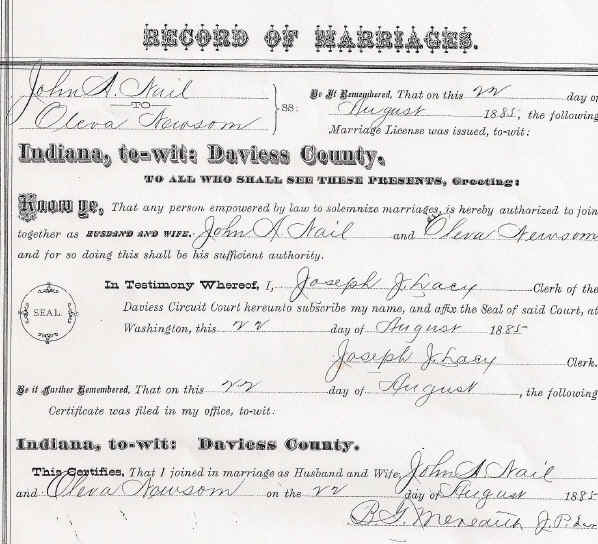 RECORD OF MARRIAGES.
John A. Nail
TO
Oleva Newsom
ss:
Be it Remembered, That on this 22 day of
August 1885, the following
Marriage License was issued, to-wit:
Indiana, to-wit: Daviess County.
TO ALL WHO SHALL SEE THESE PRESENTS, Greeting:
Know ye, That any person empowered by law to solemnize marriages, is hereby authorized to join
together as HUSBAND AND WIFE, John A Nail and Oleva Newsom
and for so doing this shall be his sufficient authority.
In Testimony Whereof, I, Joseph J. Lacy Clerk of the
Daviess Circuit Court hereunto subscribe my name, and affix the Seal of said Court, at
SEAL
Washington, this 22 day of August 1885
Joseph J. Lacy Clerk.
Be it Further Remembered, That on this 22 day of August, the following
Certificate was filed in my office, to-wit:
Indiana, to-wit: Daviess County.
This Certifies, That I joined in marriage as Husband and Wife, John A. Nail
and Oleva Newsom on the 22 day of August 1885
B. G. Meredith J. P.